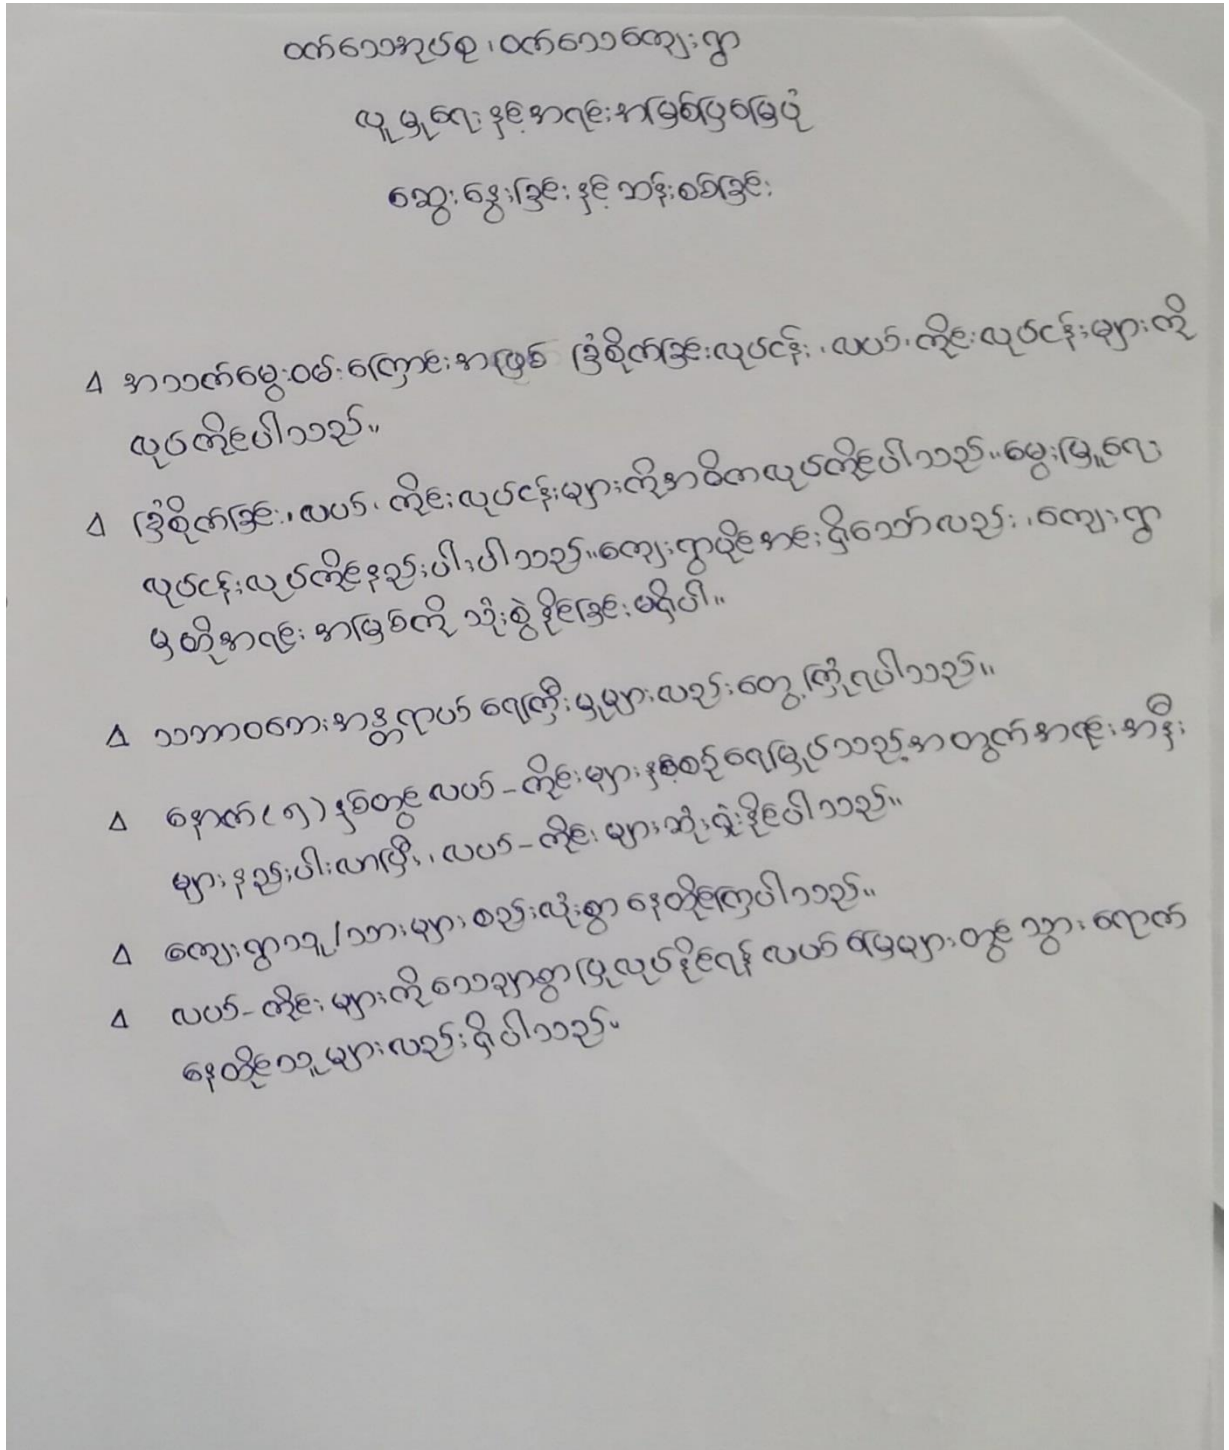 ဝက်သေအုပ်စု၊ ဝက်သေကျေးရွာ
လူမှုရေးနှင့်အရင်းအမြစ်ပြမြေပုံ
ဆွေးနွေးခြင်းနှင့်ဆန်းစစ်ခြင်း
Δ အသက်မွေးဝမ်းကြောင်းအဖြစ် ခြံစိုက်ခြင်းလုပ်ငန်း၊ လယ်၊ ကိုင်းလုပ်ငန်းများကို
လုပ်ကိုင်ပါသည်။
Δ ခြံစိုက်ခြင်း၊ လယ်၊ ကိုင်းလုပ်ငန်းများကိုအဓိကလုပ်ကိုင်ပါသည်။ မွေးမြူရေး
လုပ်ငန်းလုပ်ကိုင်နည်းပါးပါသည်။ ကျေးရွာပိုင်အင်းရှိသော်လည်း၊ ကျေးရွာ
မှထိုအရင်းအမြစ်ကို သုံးစွဲနိုင်ခြင်းမရှိပါ။
Δ သဘာဝဘေးအန္တရာယ် ရေကြီးမှုများလည်းတွေ့ကြုံရပါသည်။
Δ နောက်(၅)နှစ်တွင် လယ်-ကိုင်းများနှစ်စဉ်ရေမြုပ်သည့်အတွက်အရင်းအနှီး
များနည်းပါးလာပြီး၊ လယ်-ကိုင်းများဆုံးရှုံးနိုင်ပါသည်။
Δ ကျေးရွာသူ/သားများ စည်းလုံးစွာနေထိုင်ကြပါသည်။
Δ လယ်-ကိုင်းများကိုသေချာစွာပြုလုပ်နိုင်ရန် လယ်မြေများတွင် သွားရောက်
နေထိုင်သူများလည်းရှိပါသည်။